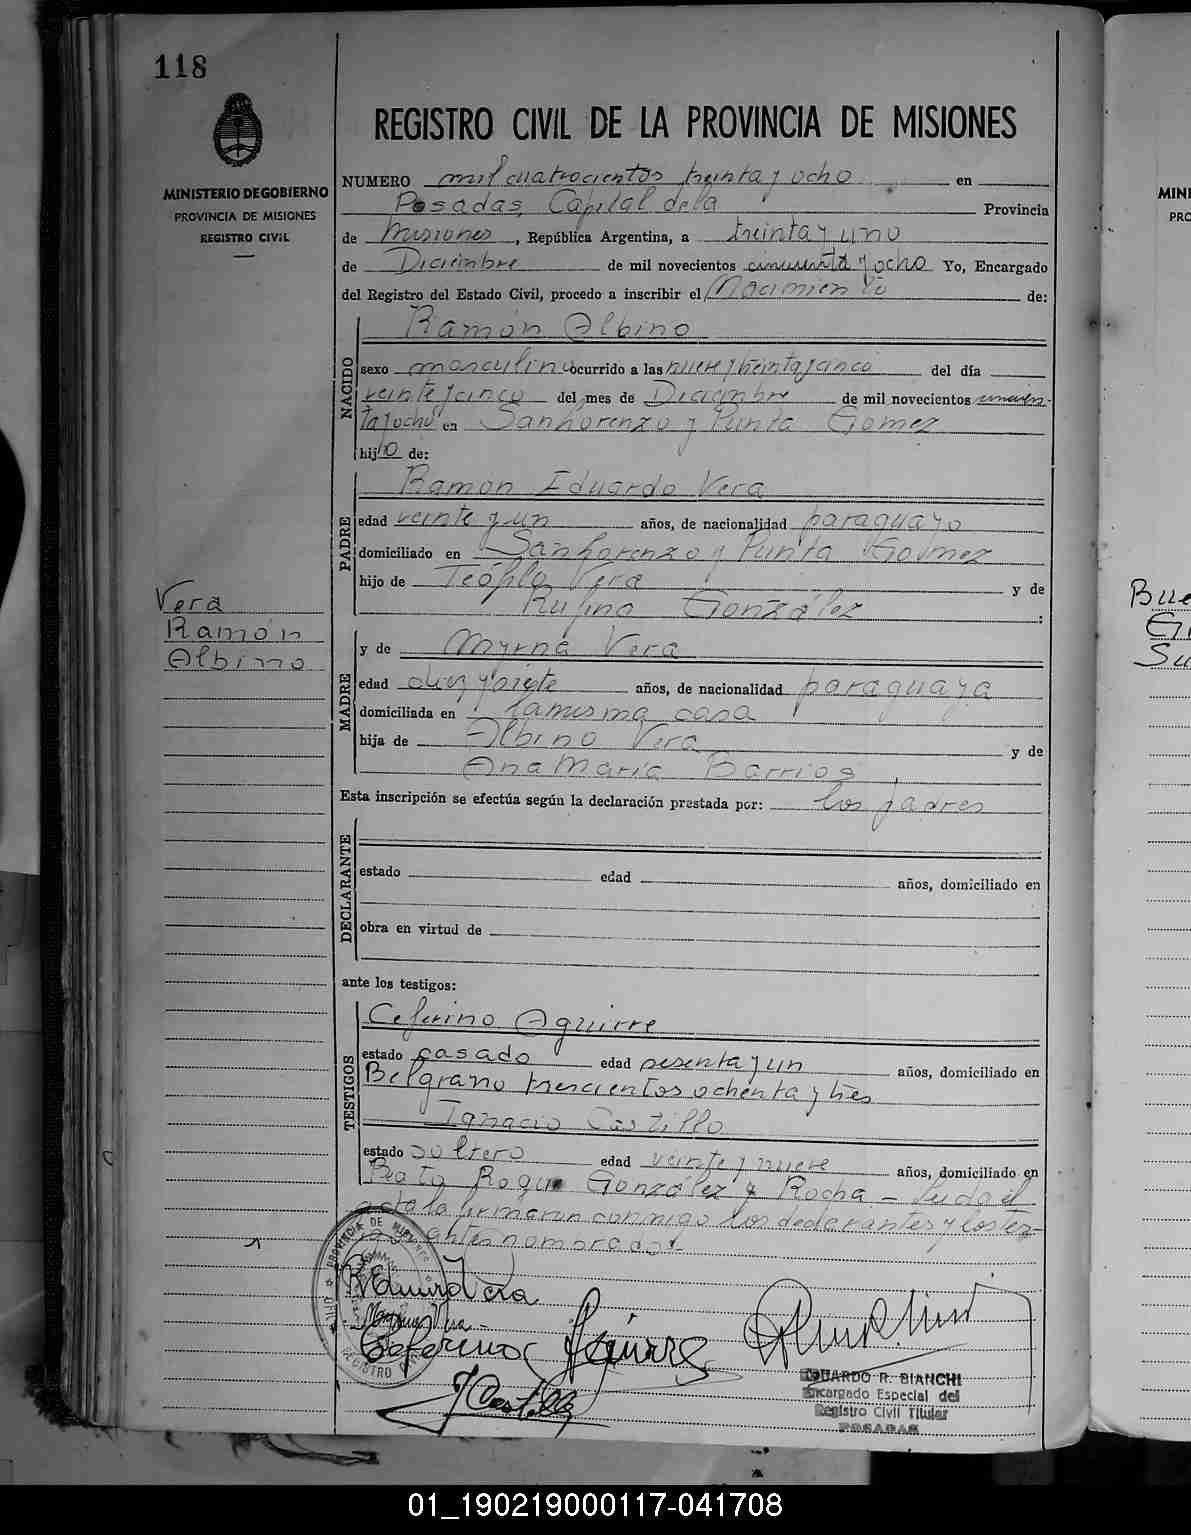 118
MINISTERIO DE GOBIERNO
PROVINCIA DE MISIONES
REGISTRO CIVIL
REGISTRO CIVIL DE LA PROVINCIA DE MISIONES
NUMERO mil cuatrocientos treinta y ocho en
Posadas, Capital de la Provincia
de Misiones, República Argentina, a treinta y uno
de Diciembre de mil novecientos cincuenta y ocho Yo, Encargado
del Registro del Estado Civil, procedo a inscribir el Nacimiento de:
NACIDO
Ramón Albino
sexo masculino ocurrido a las nueve y treinta y cinco del día
veinte y cinco del mes de Diciembre de mil novecientos cincuen-
ta y ocho en San Lorenzo y Punta Gomez
hijo de:
PADRE
Ramón Eduardo Vera
edad veinte y un años, de nacionalidad paraguayo
domiciliado en San Lorenzo y Punta Gomez
hijo de Teófilo Vera y de
Rufina González :
Vera
Ramón
Albino
MADRE
y de Myrna Vera
edad diez y siete años, de nacionalidad paraguaya
domiciliada en la misma casa
hija de Albino Vera y de
Ana Maria Barrios,
Esta inscripción se efectúa según la declaración prestada por: los padres
DECLARANTE
estado edad años, domiciliado en
obra en virtud de
ante los testigos:
TESTIGOS
Ceferino Aguirre
estado casado edad sesenta y un años, domiciliado en
Belgrano trescientos ochenta y tres
Ignacio Castillo
estado soltero edad veinte y nueve años, domiciliado en
Beato Roque González y Rocha - Leida el
acta la firmaron conmigo los declarantes y los tes-
tigos antes nombrados.-
PROVINCIA DE MISIONES
REGISTRO CIVIL
Vera
Ceferino Aguirre
J Castillo
EDUARDO R. BIANCHI
Encargado Especial del
Registro Civil Titular
POSADAS
MINI
PRO
Bue
Su
01_190219000117-041708